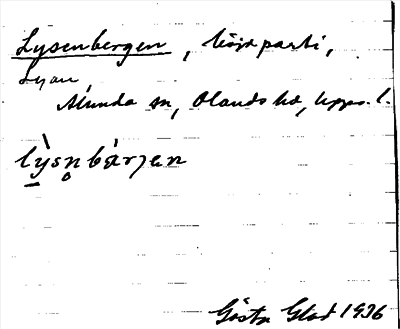 Lysenbergen, höjdparti,
Lysen
Alunda sn, Olands hd, Upps. l.
lỳsn̥bárjen
Gösta Glad 1936